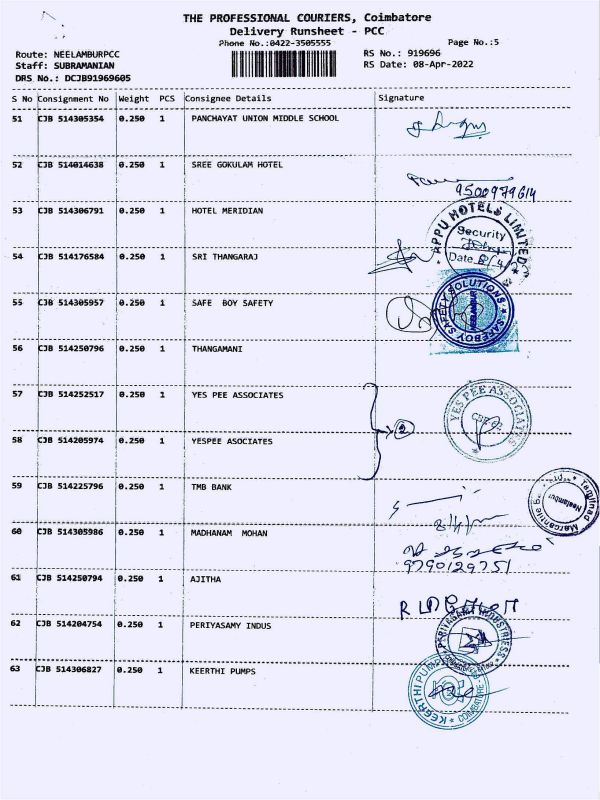 THE PROFESSIONAL COURIERS, Coimbatore
Delivery Runsheet - PCC
Phone No.:0422-3505555
Page No.:5
Route: NEELAMBURPCC
RS No.: 919696
Staff: SUBRAMANIAN
RS Date: 08-Apr-2022
DRS No.: DCJB91969605
S No Consignment No Weight PCS Consignee Details Signature
51 CJB 514305354 0.250 1 PANCHAYAT UNION MIDDLE SCHOOL
52 CJB 514014638 0.250 1 SREE GOKULAM HOTEL
9500979614
53 CJB 514306791 0.250 1 HOTEL MERIDIAN
APPU HOTELS LIMITED
Security
Date 8/4
54 CJB 514176584 0.250 1 SRI THANGARAJ
55 CJB 514305957 0.250 1 SAFE BOY SAFETY
SAFEBOY SAFETY SOLUTIONS
NEELAMBUR
56 CJB 514250796 0.250 1 THANGAMANI
57 CJB 514252517 0.250 1 YES PEE ASSOCIATES
YES PEE ASSOCIATES
CBE-62
2
58 CJB 514205974 0.250 1 YESPEE ASOCIATES
59 CJB 514225796 0.250 1 TMB BANK
Tamilnad Mercantile
Neelambur
60 CJB 514305986 0.250 1 MADHANAM MOHAN
9790129751
61 CJB 514250794 0.250 1 AJITHA
62 CJB 514204754 0.250 1 PERIYASAMY INDUS
PERIYASAMY INDUSTRIESS
63 CJB 514306827 0.250 1 KEERTHI PUMPS
KEERTHI PUMPS
COIMBATORE